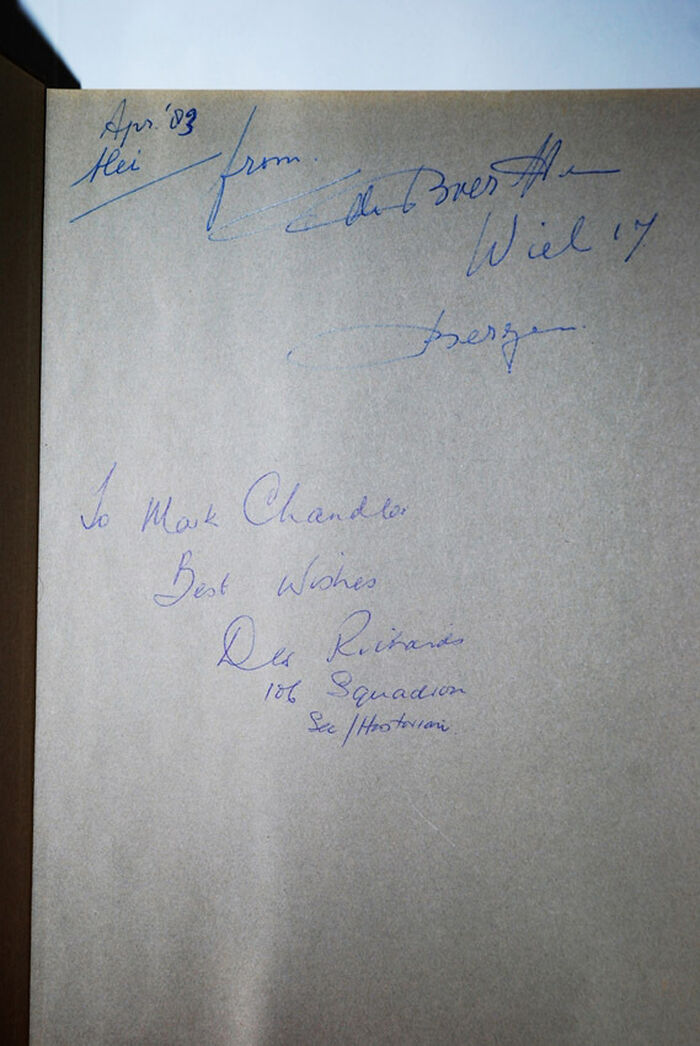 Apr. '83
Mei
from
de Boer
Wiel 17
Bergen
To Mark Chandler
Best Wishes
Des Richards
106 Squadron
Sec/Historian